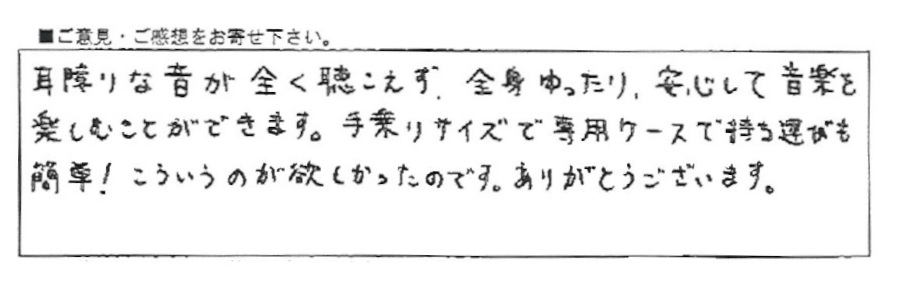 ■ご意見・ご感想をお寄せ下さい。
耳障りな音が全く聴こえず、全身ゆったり、安心して音楽を
楽しむことができます。手乗りサイズで専用ケースで持ち運びも
簡単！こういうのが欲しかったのです。ありがとうございます。